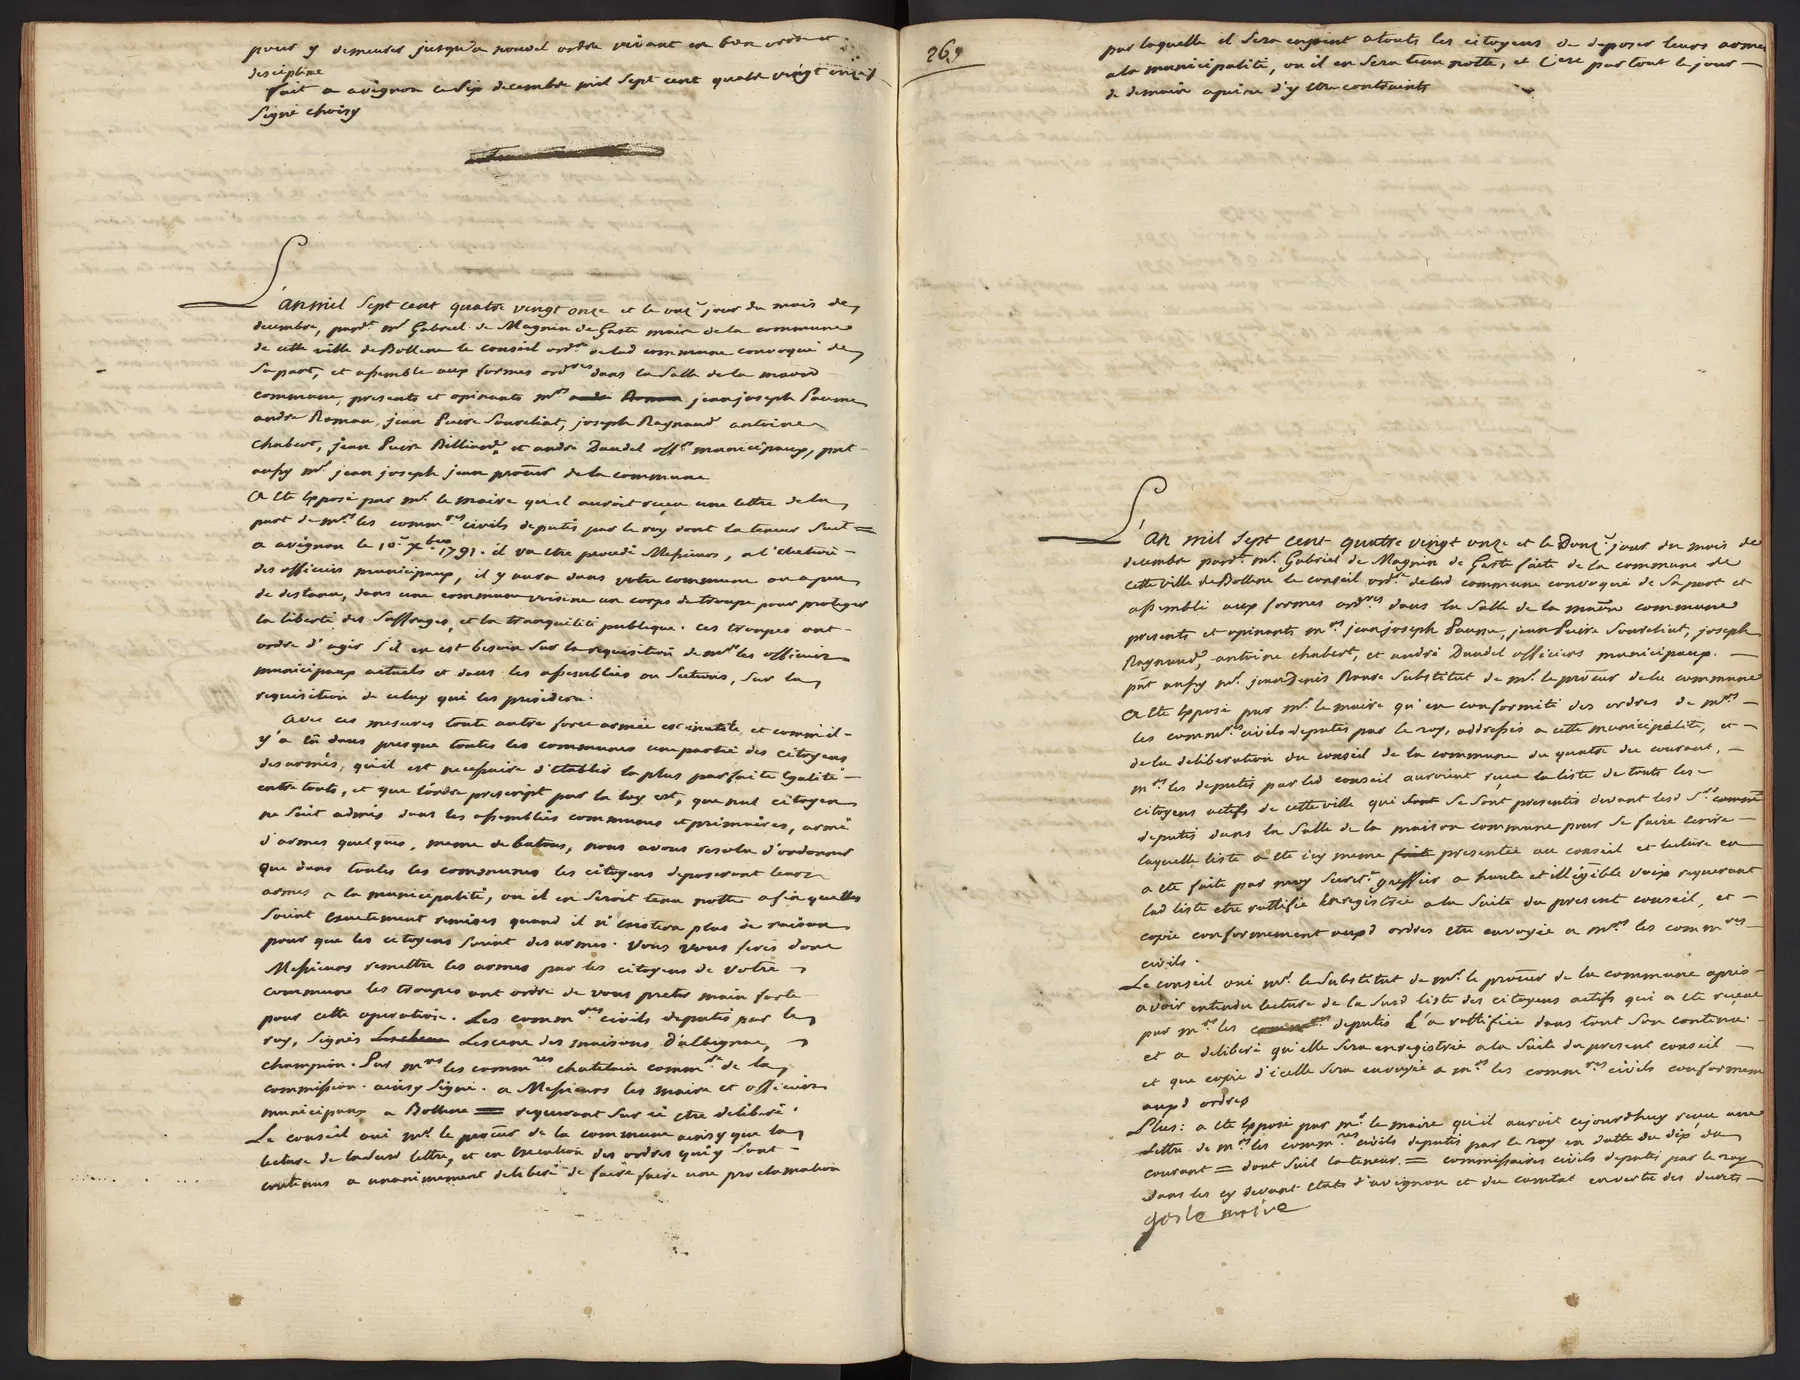 pour y demeurer jusqu'a nouvel ordre vivant en bon ordre et
discipline
fait a avignon ce six decembre mil sept cent quatre vingt onze
signé choisy
L'an mil sept cent quatre vingt onze et le onz.e jour du mois de
decembre, pard.t m.r Gabriel de Magnin de Gaste maire de la commune
de cette ville de Bollene le conseil ord.re de lad commune convoqué de
sa part, et assemblé aux formes ord.res dans la salle de la maison
commune, presents et opinants m.rs andré Roman jean joseph Paume
andre Roman, jean Pierre Sourelliat, joseph Raynaud antoine
Chabert, jean Pierre Billiard, et andré Daudel off.rs municipaux, pnt
aussy m.r jean joseph jean procur de la commune
A été exposé par m.r le maire qu'il auroit reçeu une lettre de la
part de m.rs les comm.res civils deputés par le roy dont la teneur suit =
a avignon le 10.e x.bre 1791. il va etre procedé Messieurs, a l'election
des officiers municipaux, il y aura dans votre commune ou a peu
de distance, dans une commune voisine un corps de troupe pour proteger
la liberté des suffrages, et la tranquilité publique. ces troupes ont
ordre d'agir s'il en est besoin sur la requisition de m.rs les officiers
municipaux actuels et dans les assemblées ou sections, sur la
requisition de celuy qui les presidera.
Avec ces mesures toute autre force armée est inutile, et comm'il
y'a eû dans presque toutes les communes une partie des citoyens
desarmés, qu'il est necessaire d'etablir la plus parfaite egalité
entre touts, et que l'ordre prescript par la loy est, que nul citoyen
ne soit admis dans les assemblées communes et primaires, armé
d'armes quelqu'ones, meme de batons, nous avons resolu d'ordonner
que dans toutes les communes les citoyens deposeront leurs
armes a la municipalité, ou il en seroit tenu notte afin quelles
soient exactement remises quand il n'existera plus de raison
pour que les citoyens soient desarmés. vous vous ferés donc
Messieurs remettre les armes par les citoyens de votre
commune les troupes ont ordre de vous preter main forte
pour cette operation. Les comm.res civils deputés par le
roy, signés Leschene Lescene des maisons, D'albignac,
champion. Par m.rs les comm.res chatelain comm.re de la
commission. ainsy signé. a Messieurs les maire et officiers
municipaux a Bollene = requerant sur ce etre deliberé.
Le conseil oui m.r le procur de la commune ainsy que la
lecture de la susd lettre, et en execution des ordres qui y sont
contenus a unanimement deliberé de faire faire une proclamation
269
par laquelle il sera enjoint a touts les citoyens de deposer leurs armes
a la municipalité, ou il en sera tenu notte, et c'ere par tout le jour
de demain a peine d'y etre contraints
L'an mil sept cent quatre vingt onze et le Douz.e jour du mois de
decembre pard.t m.r Gabriel de Magnin de Gaste faite de la commune de
cette ville de Bollene le conseil ord.re de lad commune convoqué de sa part et
assemblé aux formes ord.res dans la salle de la maison commune
presents et opinants m.rs jean joseph Paume, jean Pierre Sourelliat, joseph
Raynaud, antoine chabert, et andré Daudel officiers municipaux.
pnt aussy m.r jean Denis Rouse substitut de m.r le procur de la commune
A été exposé par m.r le maire qu'en conformité des ordres de m.rs
les comm.res civils deputés par le roy, addressés a cette municipalité, et
de la deliberation du conseil de la commune du quatre du courant,
m.rs les deputés par led conseil auroient reçeu la liste de touts les
citoyens actifs de cette ville qui sont se sont presentés devant lesd s.rs comm.
deputés dans la salle de la maison commune pour se faire ecrire
laquelle liste a été icy meme faite presentée au conseil et lecture en
a été faite par moy secret.e greffier a haute et illigible voix requerant
lad liste etre rattifiée Enregistrée a la suite du present conseil, et
copie conformement auxd ordres etre envoyée a m.rs les comm.res
civils.
Le conseil oui m.r le substitut de m.r le procur de la commune après
avoir entendu lecture de la susd liste des citoyens actifs qui a été reçeue
par m.rs les deputés L'a rattifiée dans tout son contenu
et a deliberé qu'elle sera enregistrée a la suite du present conseil
et que copie d'icelle sera envoyée a m.rs les comm.res civils conformem
auxd ordres
Plus: a été exposé par m.r le maire qu'il auroit cejourdhuy reçeu une
Lettre de m.rs les comm.res civils deputés par le roy en datte du dix du
courant = dont suit la teneur = commissaires civils deputés par le roy
dans les cy devant Etats d'avignon et du comtat en vertu des decrets
gaste maire